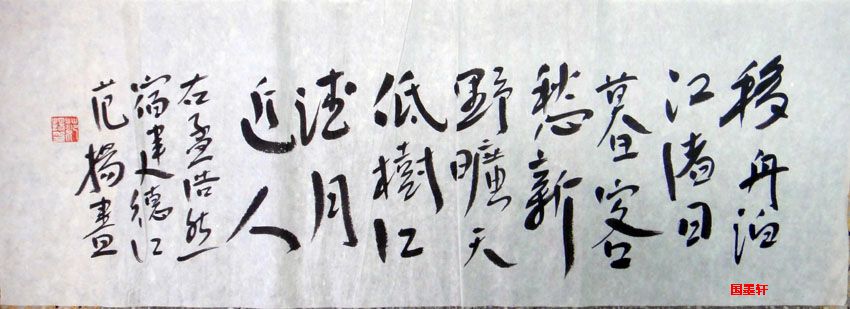 移舟泊
江渚日
暮客
愁新
野曠天
低樹江
清月
近人
右孟浩然
宿建德江
范揚書
国墨轩